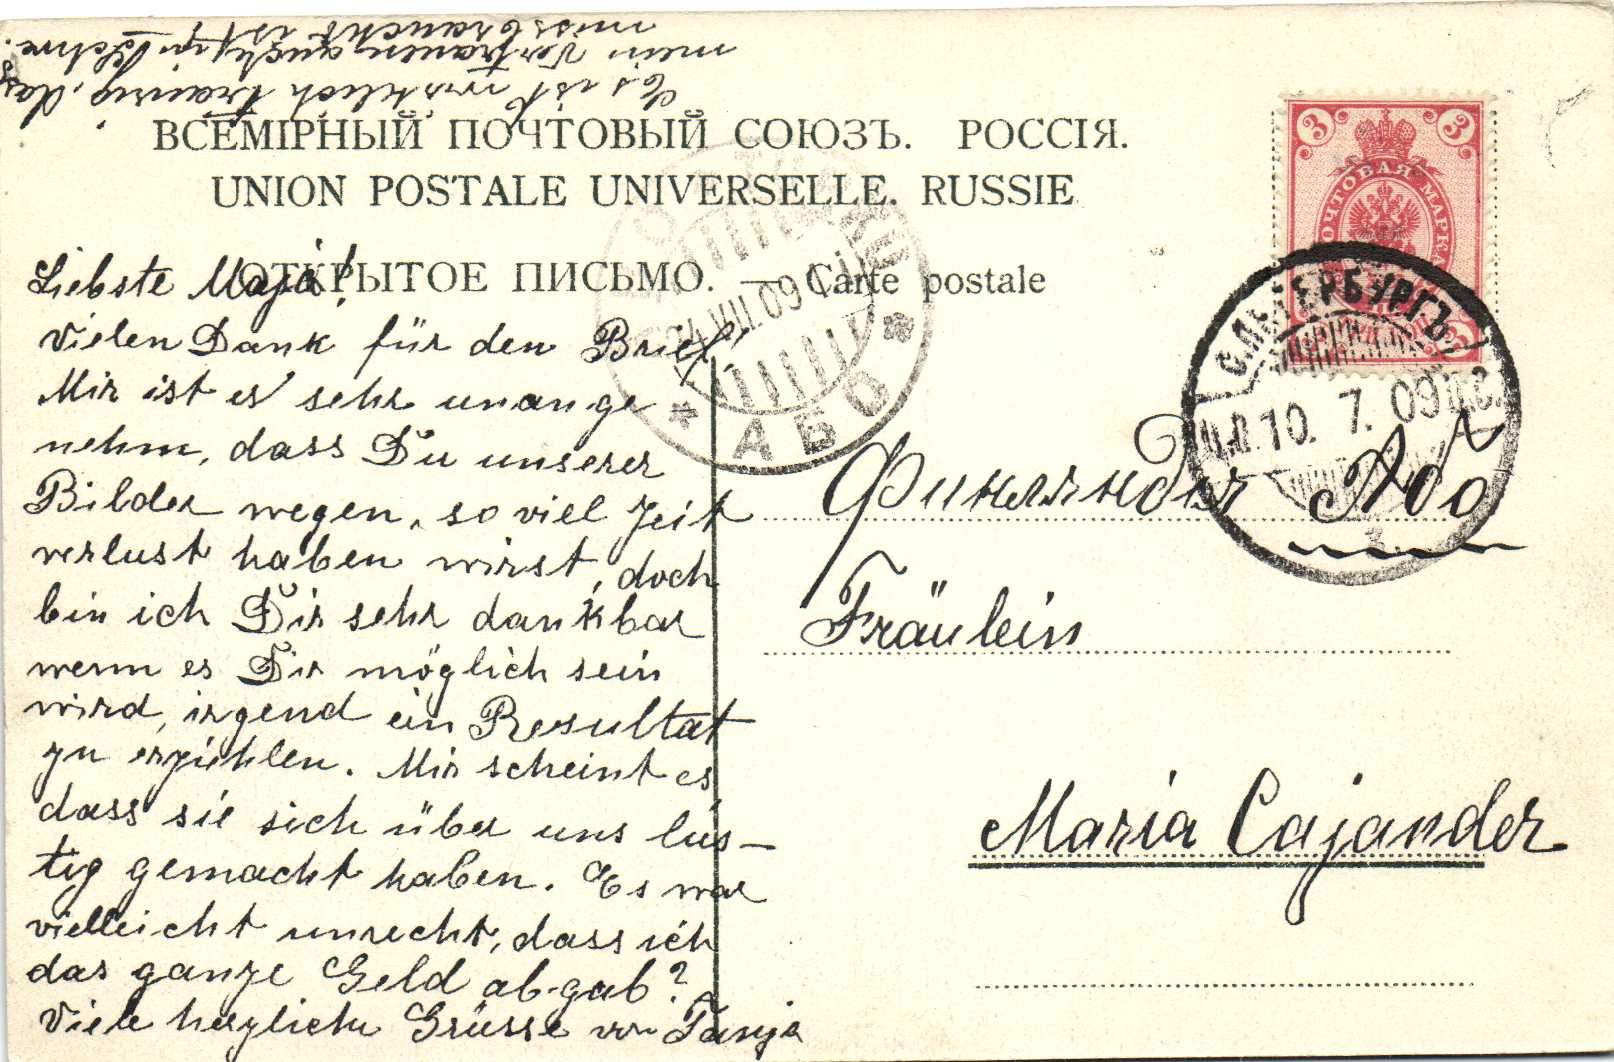 ВСЕМІРНЫЙ ПОЧТОВЫЙ СОЮЗЪ. РОССІЯ.
UNION POSTALE UNIVERSELLE. RUSSIE
ОТКРЫТОЕ ПИСЬМО. — Carte postale
Liebste Maja!
Vielen Dank für den Brief,
Mir ist es sehr unange
nehm, dass Du unserer
Bilder wegen, so viel Zeit
verlust haben wirst, doch
bin ich Dir sehr dankbar
wenn es Dir möglich sein
wird, irgend ein Resultat
zu erziehlen. Mir scheint es
dass sie sich über uns lus-
tig gemacht haben. Es war
vielleicht unrecht, dass ich
das ganze Geld ab-gab?
Viele herzliche Grüsse von Tanja
Es ist wirklich traurig, das
mein Vertrauen
missbraucht ist
Финляндія Åbo
Fräulein
Maria Cajander
3 3
ПОЧТОВАЯ МАРКА
С.ПЕТЕРБУРГЪ
10. 7. 09
24 VIII 09
АБО